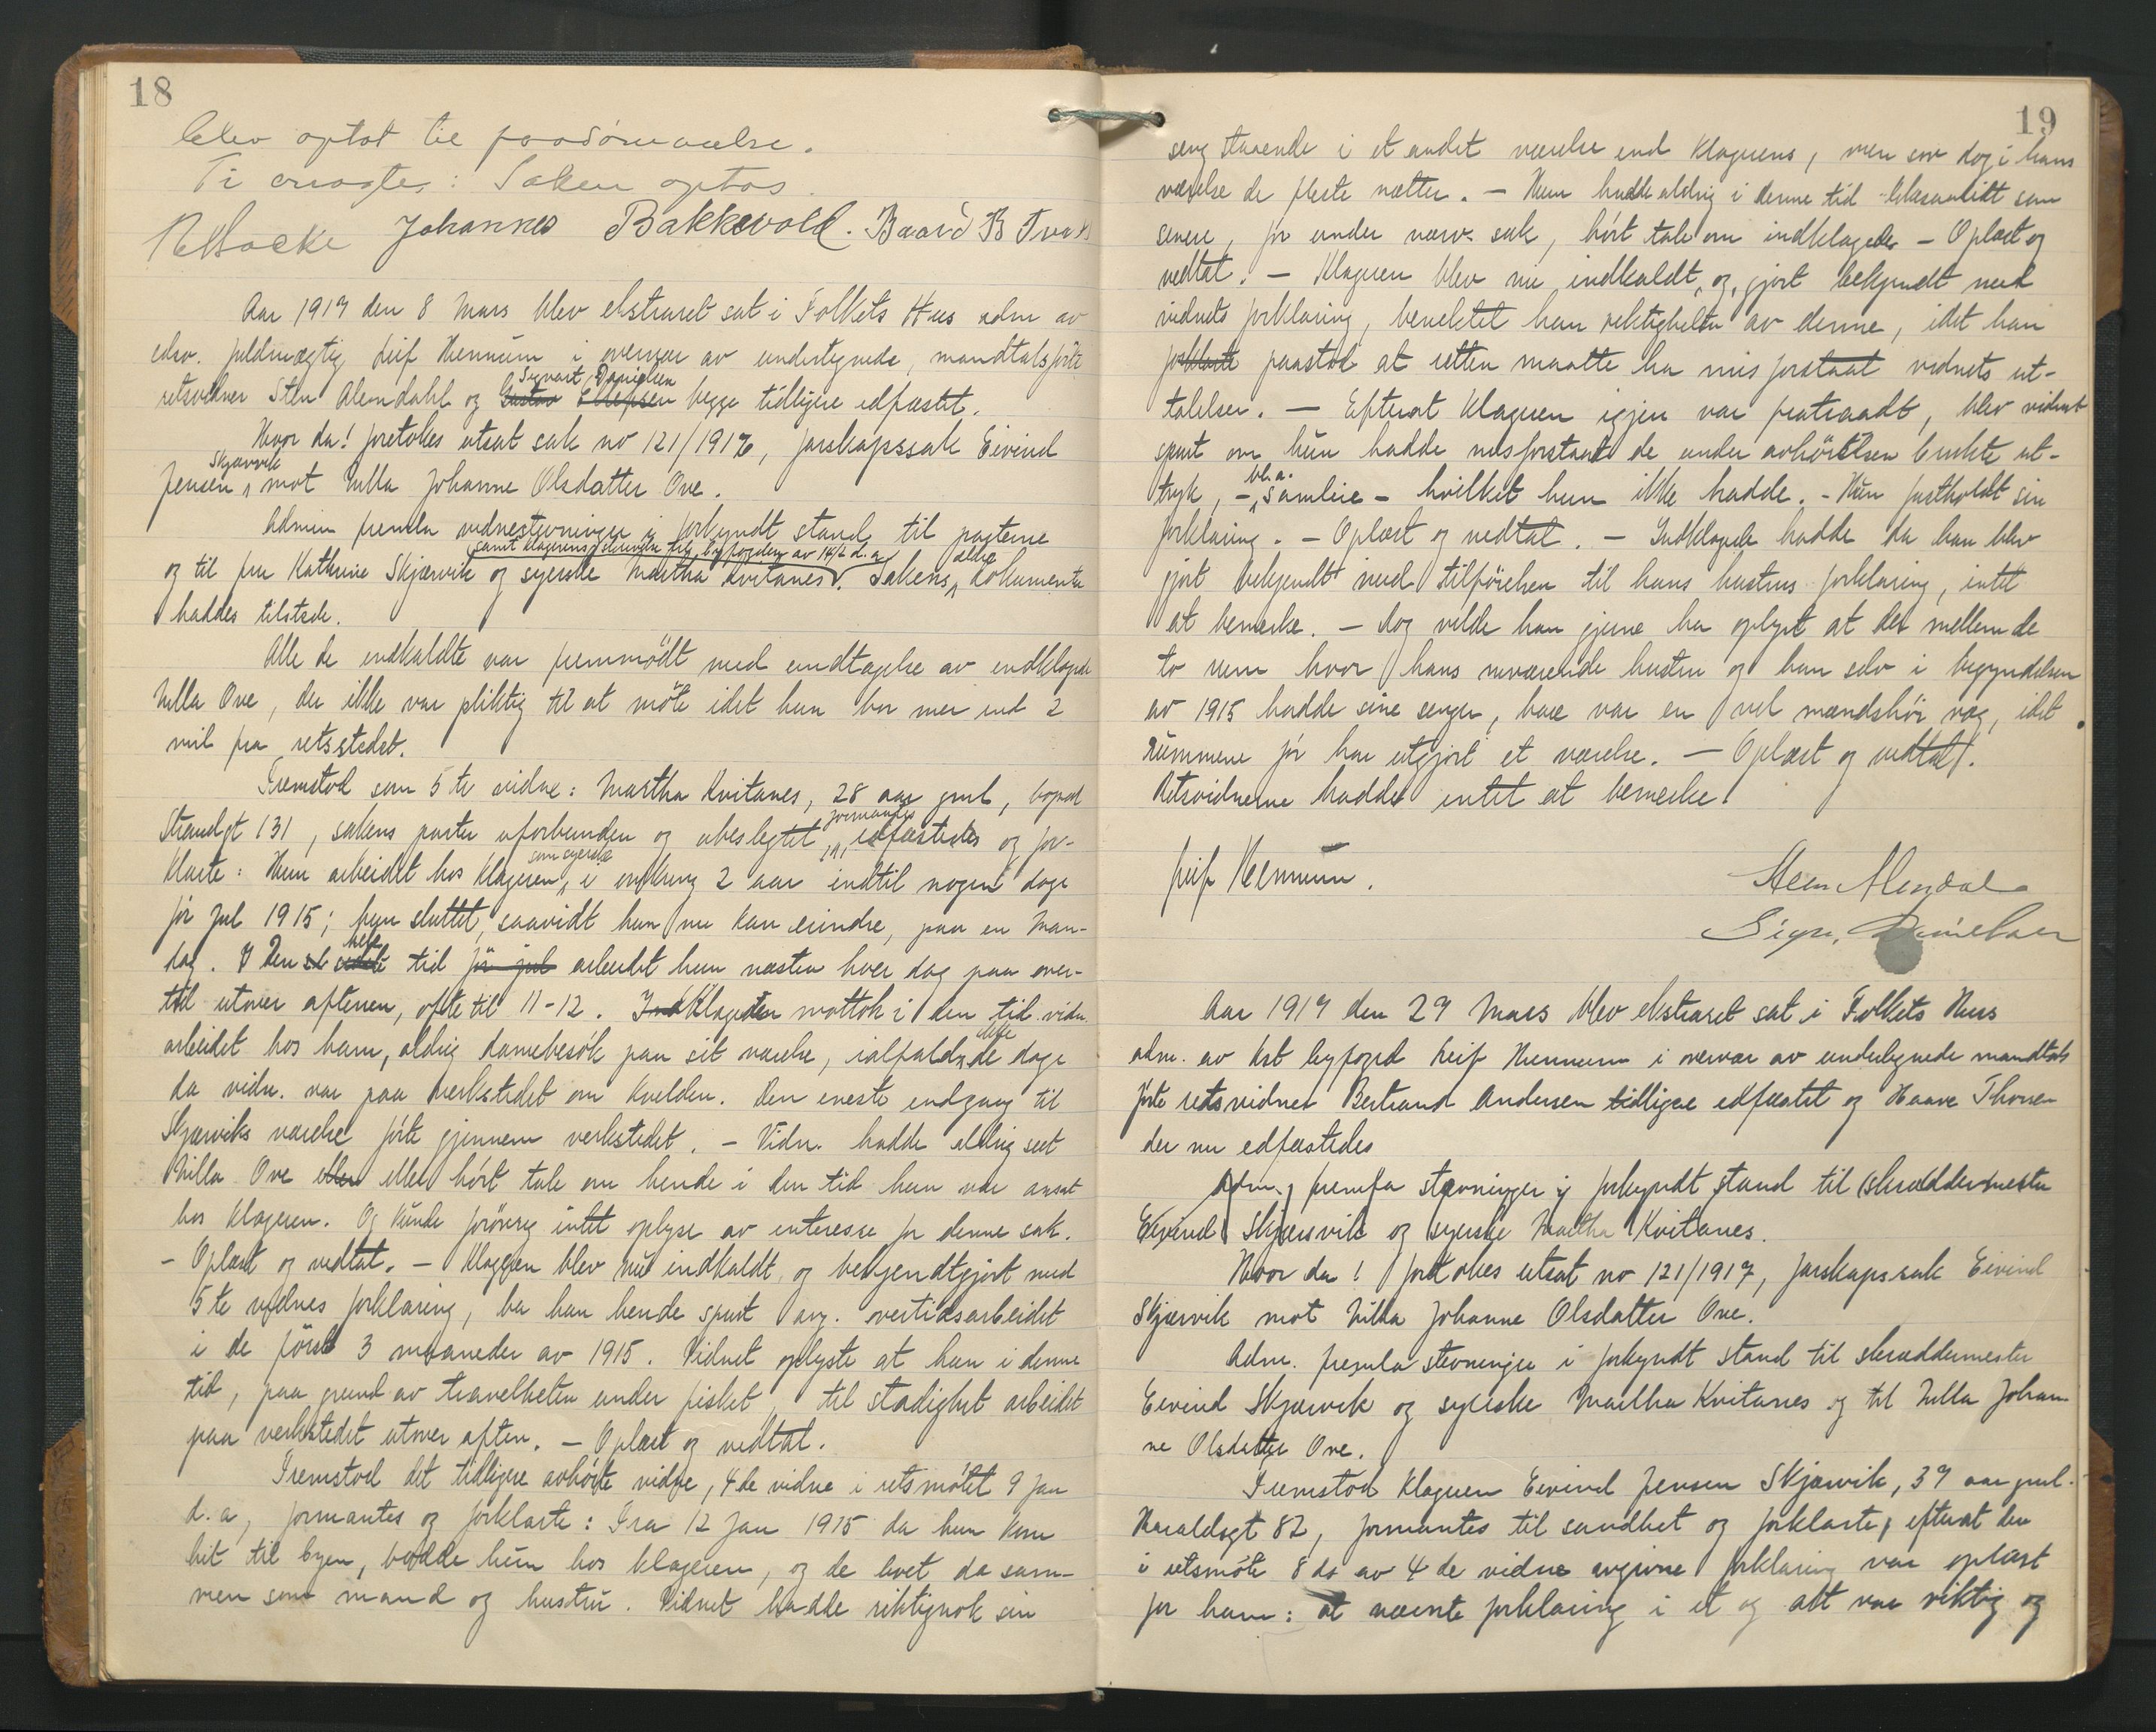 18
blev optat til paadömmelse.
Ti eragtes: Saken optas.
Johannes Bakkevold. Baard B
Aar 1917 den 8 Mars blev ekstraret sat i Folkets Hus adm av
edsv. fuldmægtig Leif Hennum i overvær av undertegnede, mandtalsförte
retsvidner Sten Alendahl og Sigvart Danielsen begge tidligere edfæstet.
Hvor da! foretokes utsat sak no 121/1916, farskapssak Eivind
Jensen Skjærvik mot Nilla Johanne Olsdatter Ove.
Admin fremla vidnestevninger i forkyndt stand til parterne
samt klagerens skrivelse til byfogden av 14/2 d.a.
og til fru Kathrine Skjærvik og syerske Martha Kvitanes. Sakens ældre dokumenter
haddes tilstede.
Alle de indkaldte var fremmödt med undtagelse av indklagede
Nilla Ove, der ikke var pliktig til at möte idet hun bor mer end 2
mil fra retsstedet.
Fremstod som 5te vidne: Martha Kvitanes, 28 aar gml, bopæl
Strandgt 131, sakens parter uforbunden og ubeslegtet, formantes, edfæstedes og for-
klarte: Hun arbeidet hos klageren, som syerske i omkring 2 aar indtil nogen dage
för jul 1915; hun sluttet, saavidt hun nu kan erindre, paa en Man-
dag. I den hele tid för jul arbeidet hun næsten hver dag paa over-
tid utover aftenen, ofte til 11-12. Klageren mottok i den tid vidn.
arbeidet hos ham, aldrig damebesök paa sit værelse, ialfald ikke de dage
da vidn. var paa verkstedet om kvelden. Den eneste indgang til
Skjærviks værelse förte gjennem verkstedet. - Vidn. hadde aldrig seet
Nilla Ove eller hört tale om hende i den tid hun var ansat
hos klageren. Og kunde forövrig intet oplyse av interesse for denne sak.
- Oplæst og vedtat. - Klageren blev nu indkaldt, og bekjendtgjort med
5te vidnes forklaring, ba han hende spurt ang. overtidsarbeidet
i de förste 3 maaneder av 1915. Vidnet oplyste at hun i denne
tid, paa grund av travelheten under fisket, til stadighet arbeidet
paa verkstedet utover aften. - Oplæst og vedtat.
Fremstod det tidligere avhörte vidne, 4de vidne i retsmötet 9 jan
d.a, formantes og forklarte: Fra 12 jan 1915 da hun kom
hit til byen, bodde hun hos klageren, og de levet da sam-
men som mand og hustru. Vidnet hadde riktignok sin
19
seng staaende i et andet værelse end klagerens, men sov dog i hans
værelse de fleste nætter. - Hun hadde aldrig i denne tid som
senere, för under nærv. sak, hört tale om indklagede - Oplæst og
vedtat. - Klageren blev nu indkaldt, og, gjort bekjendt med
vidnets forklaring, benektet han riktigheten av denne, idet han
forklarte paastod at retten maatte ha misforstaat vidnets ut-
talelser. - Efterat klageren igjen var fratraadt, blev vidnet
spurt om hun hadde misforstaat de under avhörelsen brukte ut-
tryk, - bl.a. samleie - hvilket hun ikke hadde. - Hun fastholdt sin
forklaring. - Oplæst og vedtat. - Indklagede hadde da han blev
gjort bekjendt med tilförelsen til hans hustrus forklaring, intet
at bemerke. - Dog vilde han gjerne ha oplyst at der mellem de
to rum hvor hans nuværende hustru og han selv i begyndelsen
av 1915 hadde sine senger, bare var en vel mandshöi væg, idet
rummene för har utgjort et værelse. - Oplæst og vedtat.
Retsvidnerne hadde intet at bemerke.
Leif Hennum.
Sten Alendal
Sigv. Danielsen
Aar 1917 den 29 Mars blev ekstraret sat i Folkets Hus
adm. av kst byfogd Leif Hennum i overvær av undertegnede mandtals
förte retsvidner Bertrand Andersen tidligere edfæstet og Haave Thorsen
der nu edfæstedes
Adm. fremla stevninger i forkyndt stand til skræddermester
Eivind Skjærvik og syerske Martha Kvitanes.
Hvor da! foretokes utsat no 121/1917, farskapssak Eivind
Skjærvik mot Nilla Johanne Olsdatter Ove.
Adm. fremla stevninger i forkyndt stand til skræddermester
Eivind Skjærvik og syerske Martha Kvitanes og til Nilla Johan-
ne Olsdatter Ove.
Fremstod klageren Eivind Jensen Skjærvik, 39 aar gml.
Haraldsgt 82, formantes til sandhet og forklarte, efterat den
i retsmöte 8 ds av 4de vidne avgivne forklaring var oplæst
for ham: at nævnte forklaring i et og alt var riktig og